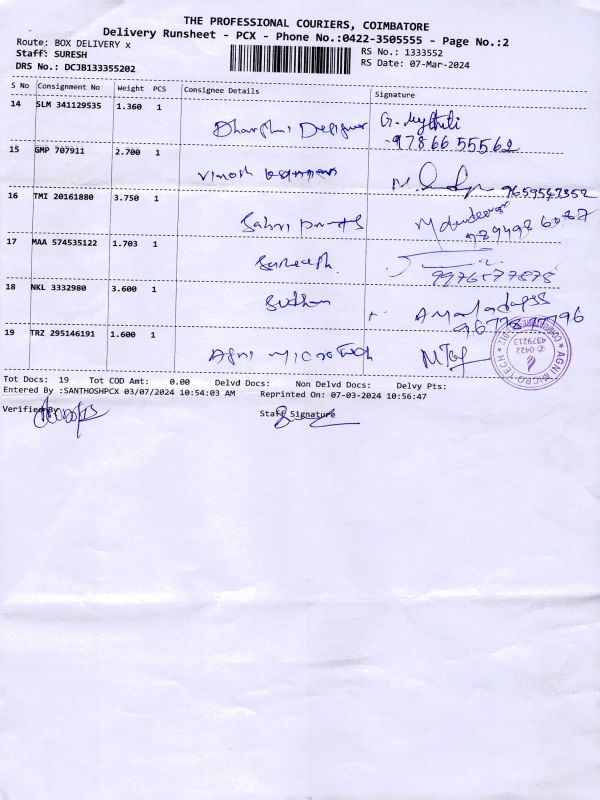 THE PROFESSIONAL COURIERS, COIMBATORE
Delivery Runsheet - PCX - Phone No.:0422-3505555 - Page No.:2
Route: BOX DELIVERY x
RS No.: 1333552
Staff: SURESH
RS Date: 07-Mar-2024
DRS No.: DCJB133355202
S No Consignment No Weight PCS Consignee Details Signature
14 SLM 341129535 1.360 1
Dharshni Designer G. Mythili
97866 55562
15 GMP 707911 2.700 1
Vinoth
9659547352
16 TMI 20161880 3.750 1
Sabri
17 MAA 574535122 1.703 1
Sureesh.
9976577878
18 NKL 3332980 3.600 1
Sudhan
19 TRZ 295146191 1.600 1
Agni Microtech
AGNI MICRO TECH
✆ 0422
4379213
Tot Docs: 19 Tot COD Amt: 0.00 Delvd Docs: Non Delvd Docs: Delvy Pts:
Entered By :SANTHOSHPCX 03/07/2024 10:54:03 AM Reprinted On: 07-03-2024 10:56:47
Verified By Staff Signature